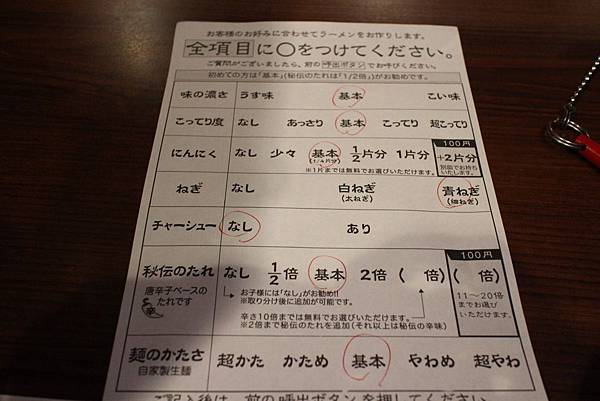 お客様のお好みに合わせてラーメンをお作りします。
全項目に○をつけてください。
ご質問がございましたら、前の呼出ボタンでお呼びください。
初めての方は「基本」(秘伝のたれは「1/2倍」)がお勧めです。
味の濃さ うす味 基本 こい味
こってり度 なし あっさり 基本 こってり 超こってり
100円
にんにく なし 少々 基本 1/2片分 1片分 +2片分
(1/4片分) 別皿でお持ち
※1片までは無料でお選びいただけます。 いたします。
ねぎ なし 白ねぎ 青ねぎ
(太ねぎ) (細ねぎ)
チャーシュー なし あり
100円
秘伝のたれ なし 1/2倍 基本 2倍 ( 倍) ( 倍)
唐辛子ベースの お子様には「なし」がお勧め!! 11〜20倍
たれです ※取り分け後に追加が可能です。 までお選び
辛 いただけます。
辛さ10倍までは無料でお選びいただけます。
※2倍まで秘伝のたれを追加(それ以上は秘伝の辛味)
麺のかたさ 超かた かため 基本 やわめ 超やわ
自家製生麺
ご記入後は、前の呼出ボタンを押してください